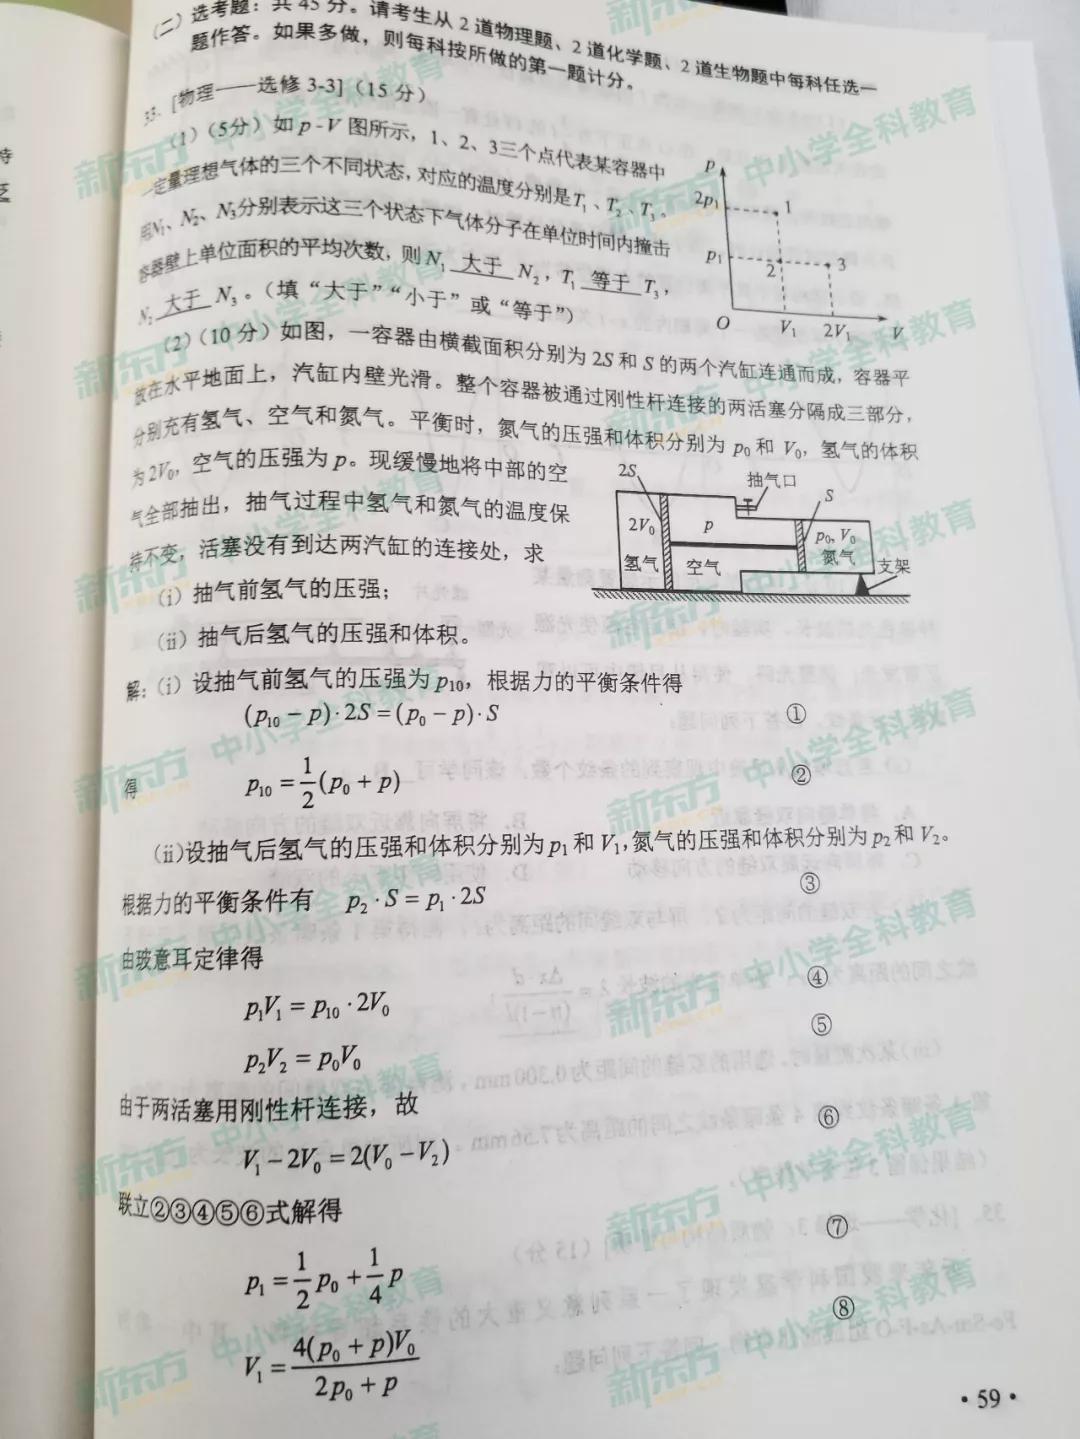 (二) 选考题：共 45 分。请考生从 2 道物理题、2 道化学题、2 道生物题中每科任选一
题作答。如果多做，则每科按所做的第一题计分。
33. [物理——选修 3-3]（15 分）
（1）（5分）如 p-V 图所示，1、2、3三个点代表某容器中
一定量理想气体的三个不同状态，对应的温度分别是T₁、T₂、T₃。
用N₁、N₂、N₃分别表示这三个状态下气体分子在单位时间内撞击
容器壁上单位面积的平均次数，则 N₁ 大于 N₂，T₁ 等于 T₃，
N₂ 大于 N₃。（填“大于”“小于”或“等于”）
p
2p₁
1
p₁
2
3
O
V₁
2V₁
V
（2）（10 分）如图，一容器由横截面积分别为 2S 和 S 的两个汽缸连通而成，容器平
放在水平地面上，汽缸内壁光滑。整个容器被通过刚性杆连接的两活塞分隔成三部分，
分别充有氢气、空气和氮气。平衡时，氮气的压强和体积分别为 p₀ 和 V₀，氢气的体积
为 2V₀，空气的压强为 p。现缓慢地将中部的空
气全部抽出，抽气过程中氢气和氮气的温度保
持不变，活塞没有到达两汽缸的连接处，求
(i) 抽气前氢气的压强；
(ii) 抽气后氢气的压强和体积。
2S
抽气口
S
2V₀
p
p₀, V₀
氢气
空气
氮气
支架
解：(i) 设抽气前氢气的压强为 p₁₀，根据力的平衡条件得
(p₁₀ − p)·2S = (p₀ − p)·S ①
得 p₁₀ = 1/2 (p₀ + p) ②
(ii)设抽气后氢气的压强和体积分别为 p₁ 和 V₁，氮气的压强和体积分别为 p₂ 和 V₂。
根据力的平衡条件有 p₂·S = p₁·2S ③
由玻意耳定律得
p₁V₁ = p₁₀·2V₀ ④
p₂V₂ = p₀V₀ ⑤
由于两活塞用刚性杆连接，故
V₁ − 2V₀ = 2(V₀ − V₂) ⑥
联立②③④⑤⑥式解得
p₁ = 1/2 p₀ + 1/4 p ⑦
V₁ = 4(p₀ + p)V₀ / (2p₀ + p) ⑧
·59·
新东方 中小学全科教育